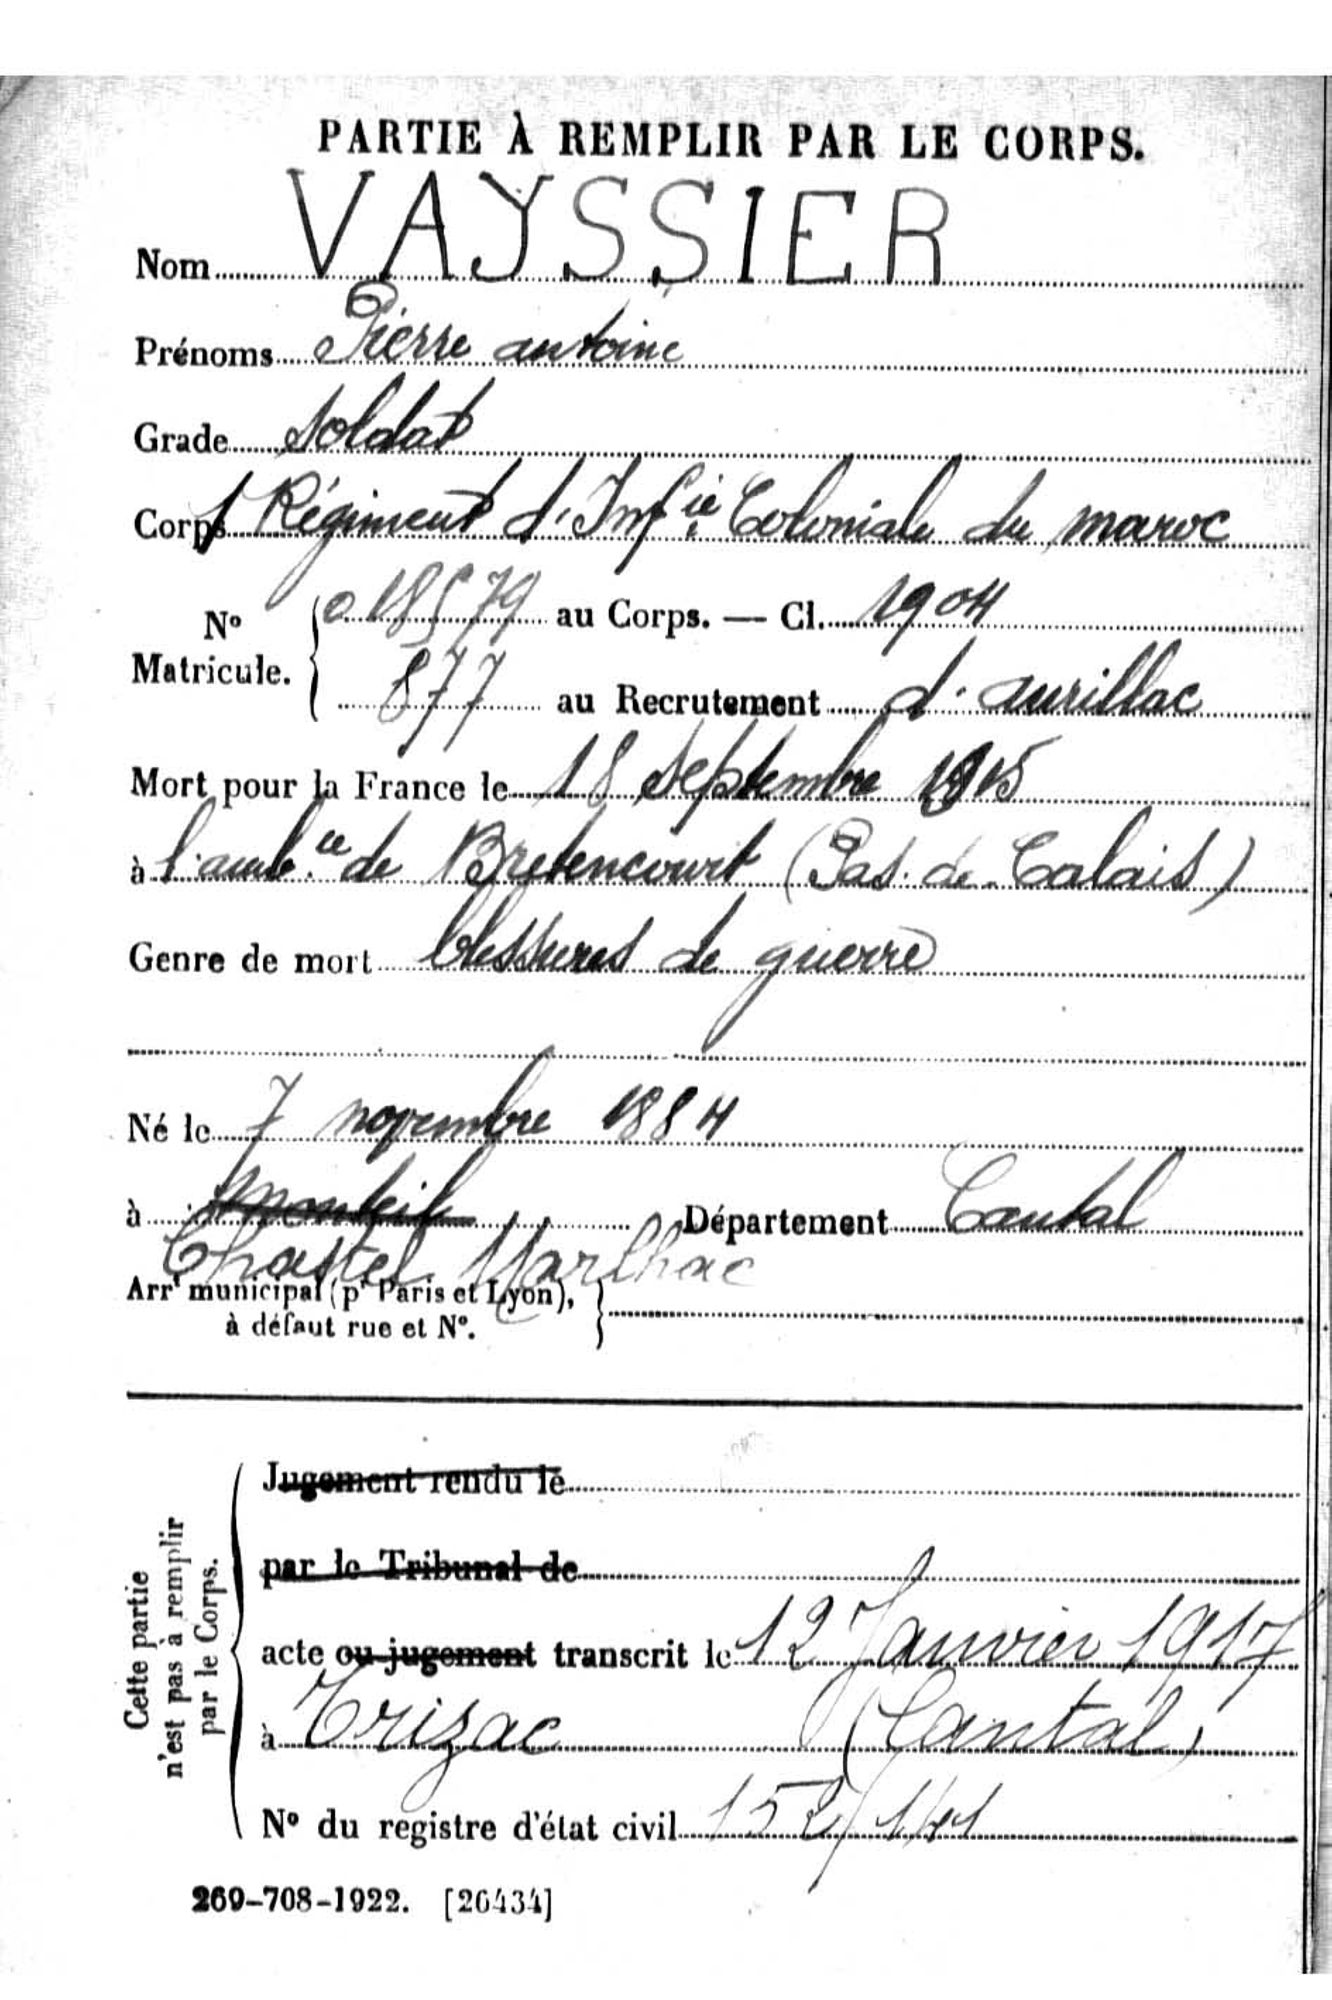 PARTIE À REMPLIR PAR LE CORPS.
Nom VAYSSIER
Prénoms Pierre antoine
Grade soldat
Corps Régiment d'Inf.ie Coloniale du maroc
N° Matricule. 018579 au Corps. — Cl. 1904
877 au Recrutement d'aurillac
Mort pour la France le 18 septembre 1915
à l'amb.ce de Bretencourt (Pas. de Calais)
Genre de mort blessures de guerre
Né le 7 novembre 1884
à Monteil Département Cantal
Chastel Marlhac
Arrt municipal (pr Paris et Lyon),
à défaut rue et N°.
Cette partie
n'est pas à remplir
par le Corps.
Jugement rendu le
par le Tribunal de
acte ou jugement transcrit le 12 Janvier 1917
à Trizac (Cantal)
N° du registre d'état civil 152/141
269-708-1922. [26434]